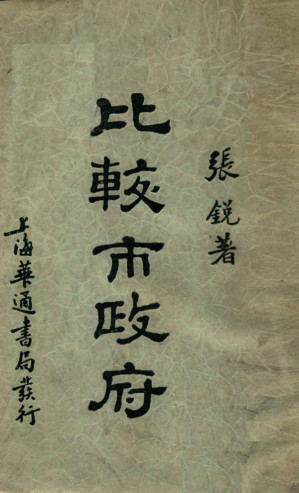 張銳著
比較市政府
上海華通書局發行